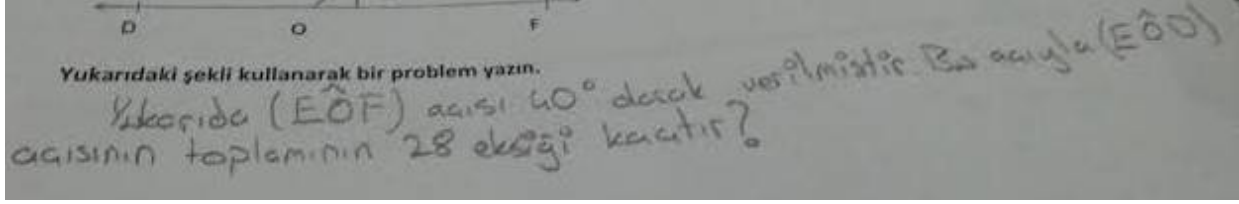 D O F
Yukarıdaki şekli kullanarak bir problem yazın.
Yukarıda (EÔF) açısı 40° olarak verilmiştir. Bu açıyla (EÔD)
açısının toplamının 28 eksiği kaçtır?